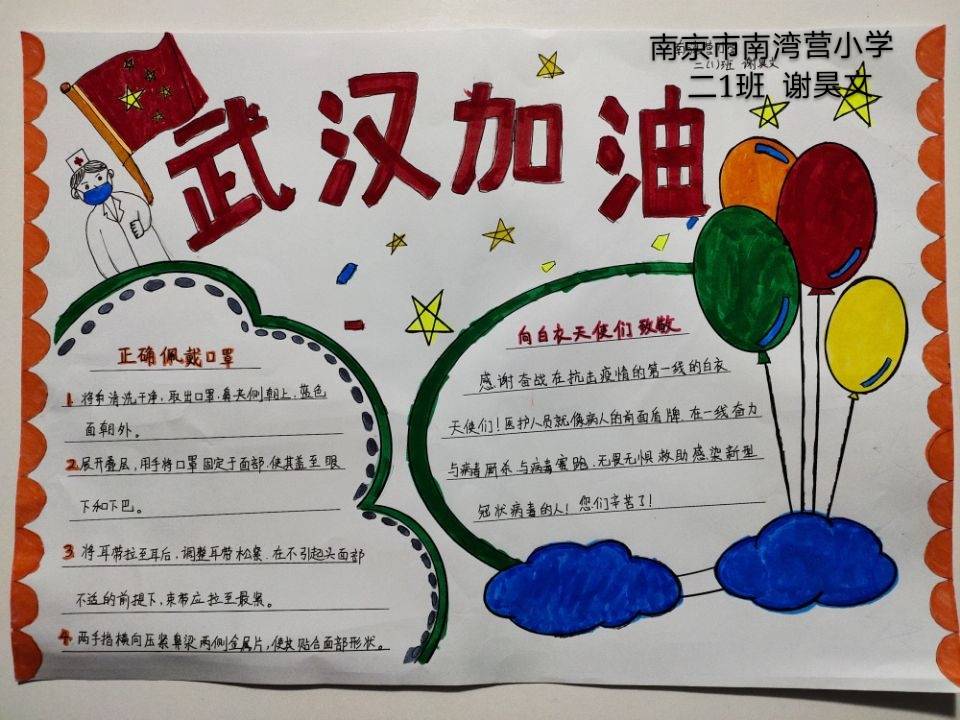 南京市南湾营小学
二1班 谢昊文
二(1)班 谢昊文
武汉加油
正确佩戴口罩
1 将手清洗干净,取出口罩,鼻夹侧朝上,蓝色
面朝外。
2 展开叠层,用手将口罩固定于面部,使其盖至眼
下和下巴。
3 将耳带拉至耳后,调整耳带松紧.在不引起头面部
不适的前提下,束带应拉至最紧。
4 两手指横向压紧鼻梁两侧金属片,使其贴合面部形状。
向白衣天使们致敬
感谢奋战在抗击疫情的第一线的白衣
天使们!医护人员就像病人的前面盾牌.在一线奋力
与病毒厮杀与病毒赛跑.无畏无惧救助感染新型
冠状病毒的人!您们辛苦了!